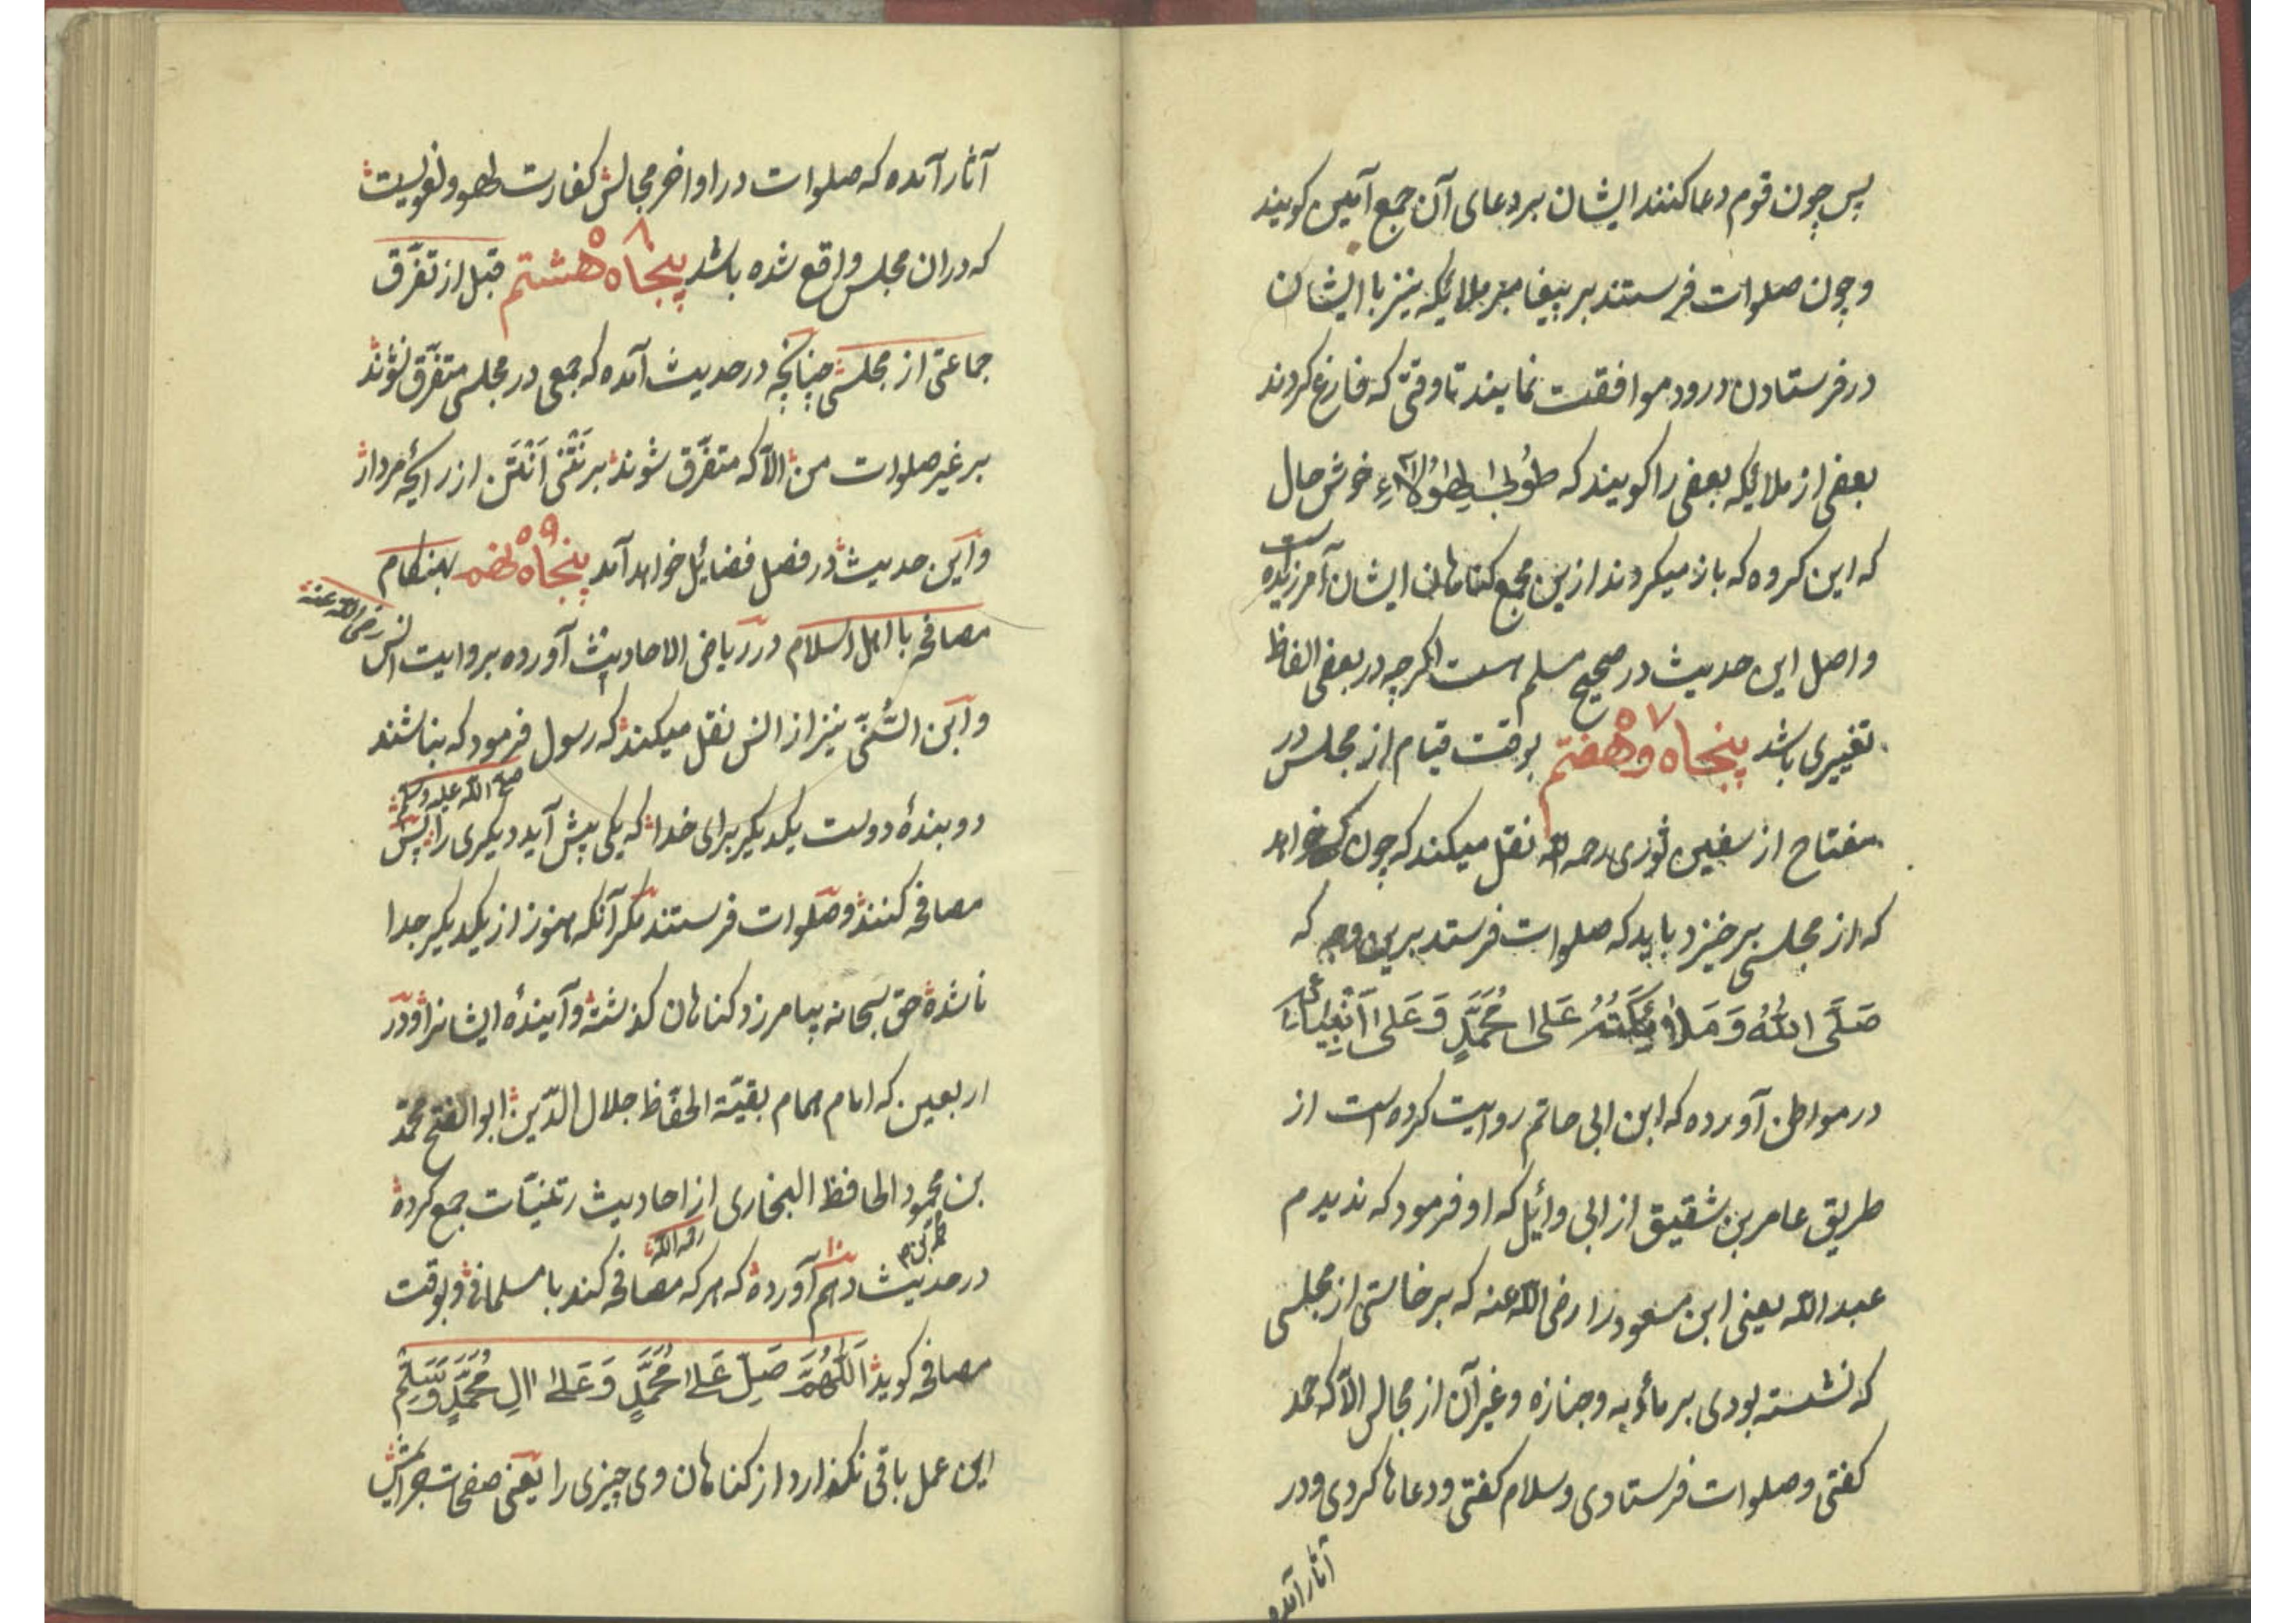 پس چون قوم دعا کنند ایشان بر دعای آن جمع آمین کویند
و چون صلوات فرستند بر پیغامبر ملایکه نیز با ایشان
در فرستادن درود موافقت نمایند تا وقتی که فارغ کردند
بعضی از ملائکه بعضی را کویند که طُوبیٰ لِهٰؤُلآءِ خوش حال
که این کروه که باز میکردند ازین مجمع کناهان ایشان آمرزیده است
و اصل این حدیث در صحیح مسلم هست اکرچه در بعضی الفاظ
تغییری باشد پنجاه و هفتم ۵۷ بوقت قیام از مجلس در
مفتاح از سفین ثوری رحمه الله نقل میکند که چون کسی خواهد
که از مجلسی برخیزد باید که صلوات فرستد برین وجه که
صَلَّی اللهُ وَمَلٰئِکَتُهُ عَلیٰ مُحَمَّدٍ وَعَلیٰ اَنْبِیَائِهِ
در مواطن آورده که ابن ابی حاتم روایت کرده است از
طریق عامر بن شقیق از ابی وائل که او فرمود که ندیدم
عبد الله یعنی ابن مسعود را رضی الله عنه که برخاستی از مجلسی
که نشسته بودی بر مأدبه و جنازه و غیر آن از مجالس الّا که حمد
کفتی و صلوات فرستادی و سلام کفتی و دعاها کردی و در
آثار آمده
آثار آمده که صلوات در اواخر مجالس کفارت لهو و لغویست
که دران مجلس واقع شده باشد پنجاه هشتم ۵۸ قبل از تفرّق
جماعتی از مجلسی چنانچه در حدیث آمده که جمعی در مجلسی متفرّق نشوند
بر غیر صلوات من الّا که متفرّق شوند بر نَتْنی اَنْتَن از رایحهٔ مردار
و این حدیث در فصل فضائل خواهد آمد پنجاه نهم ۵۹ بهنکام
مصافحه با اهل اسلام در ریاض الاحادیث آورده بروایت انس رضی الله عنه
و ابن السُّنّی نیز از انس نقل میکند که رسول فرمود که نباشند
صلی الله علیه وسلم
دو بندهٔ دوست یکدیکر برای خدا که یکی پیش آید دیکری را پس
مصافحه کنند و صلوات فرستند مکر آنکه هنوز از یکدیکر جدا
ناشده حق سبحانه بیامرزد کناهان کذشته و آیندهٔ ایشانرا و در
اربعین که امام همام بقیّة الحفّاظ جلال الدّین ابو الفتح محمّد
بن محمود الحافظ البخاری از احادیث رتنیّات جمع کرده
رحمه الله
در حدیث دهم ۱۰ آورده که هر که مصافحه کند با مسلمانی و بوقت
مصافحه کوید اَللّٰهُمَّ صَلِّ عَلیٰ مُحَمَّدٍ وَعَلیٰ اٰلِ مُحَمَّدٍ وَسَلِّم
این عمل باقی نکذارد از کناهان وی چیزی را یعنی صفحات جرائمش